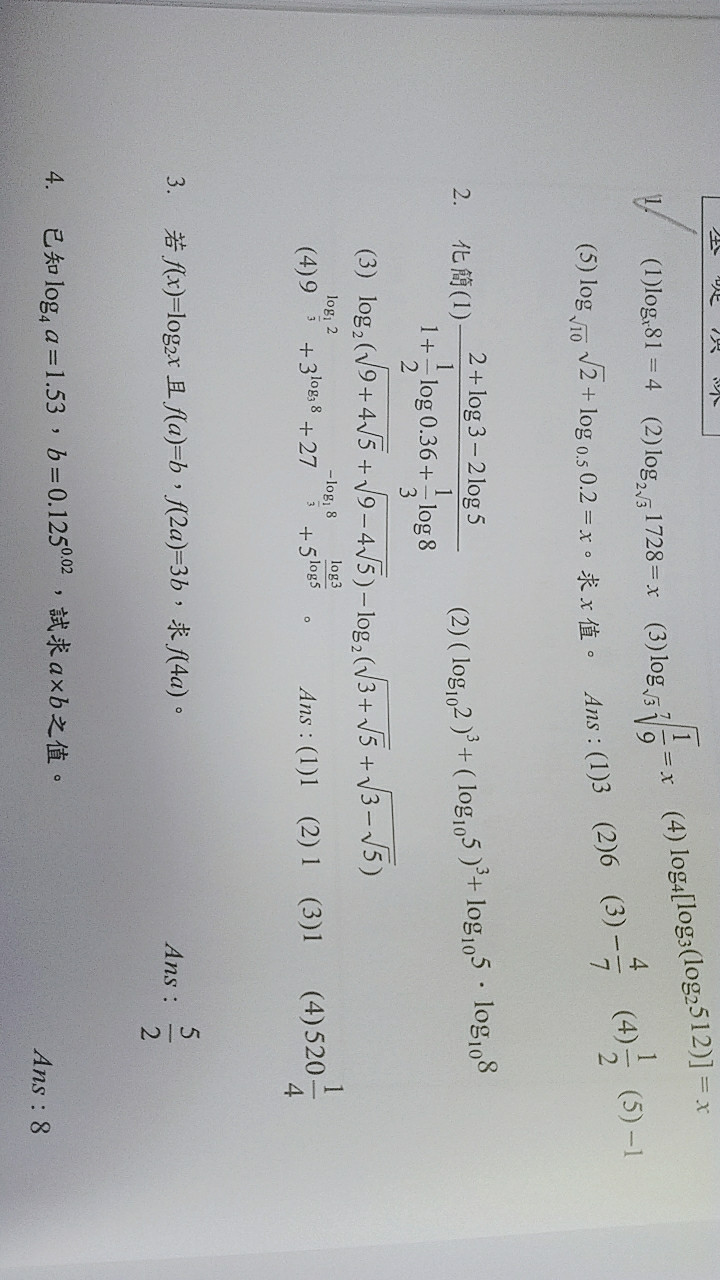 基礎演練
1. (1)logₓ81=4 (2)log_{2√3}1728=x (3)log_{√3}⁷√(1/9)=x (4)log₄[log₃(log₂512)]=x
(5)log_{√10}√2+log_{0.5}0.2=x。求x值。 Ans:(1)3 (2)6 (3)-4/7 (4)1/2 (5)-1
2. 化簡(1) (2+log3-2log5)/(1+1/2 log0.36+1/3 log8) (2)(log₁₀2)³+(log₁₀5)³+log₁₀5·log₁₀8
(3) log₂(√(9+4√5)+√(9-4√5))-log₂(√(3+√5)+√(3-√5))
(4)9^{log_{1/3}2}+3^{log₃8}+27^{-log_{1/3}8}+5^{log3/log5}。 Ans:(1)1 (2)1 (3)1 (4)520 1/4
3. 若f(x)=log₂x且f(a)=b,f(2a)=3b,求f(4a)。
Ans:5/2
4. 已知log₄a=1.53,b=0.125^{0.02},試求a×b之值。
Ans:8